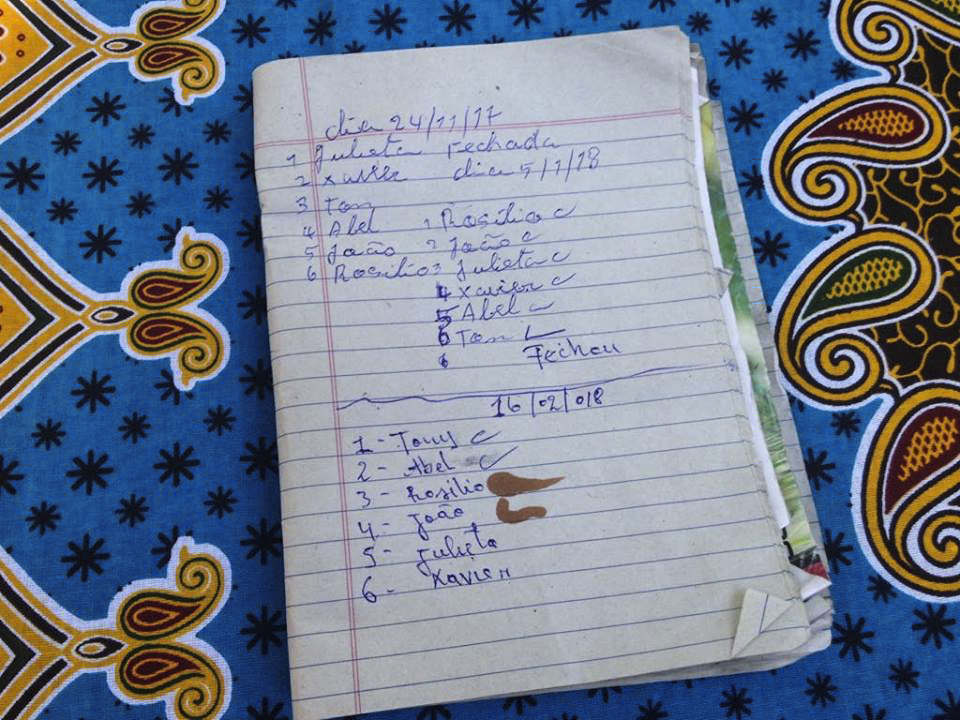 dia 24/11/17
1 Julieta Fechada
2 Xavier dia 5/1/18
3 Ton
4 Abel 1 Rosilio
5 João 2 João
6 Rosilio 3 Julieta
4 Xavier
5 Abel
6 Ton
6 Fechou
16/02/018
1- Tony
2- Abel
3- Rosilio
4- João
5- Julieta
6- Xavier